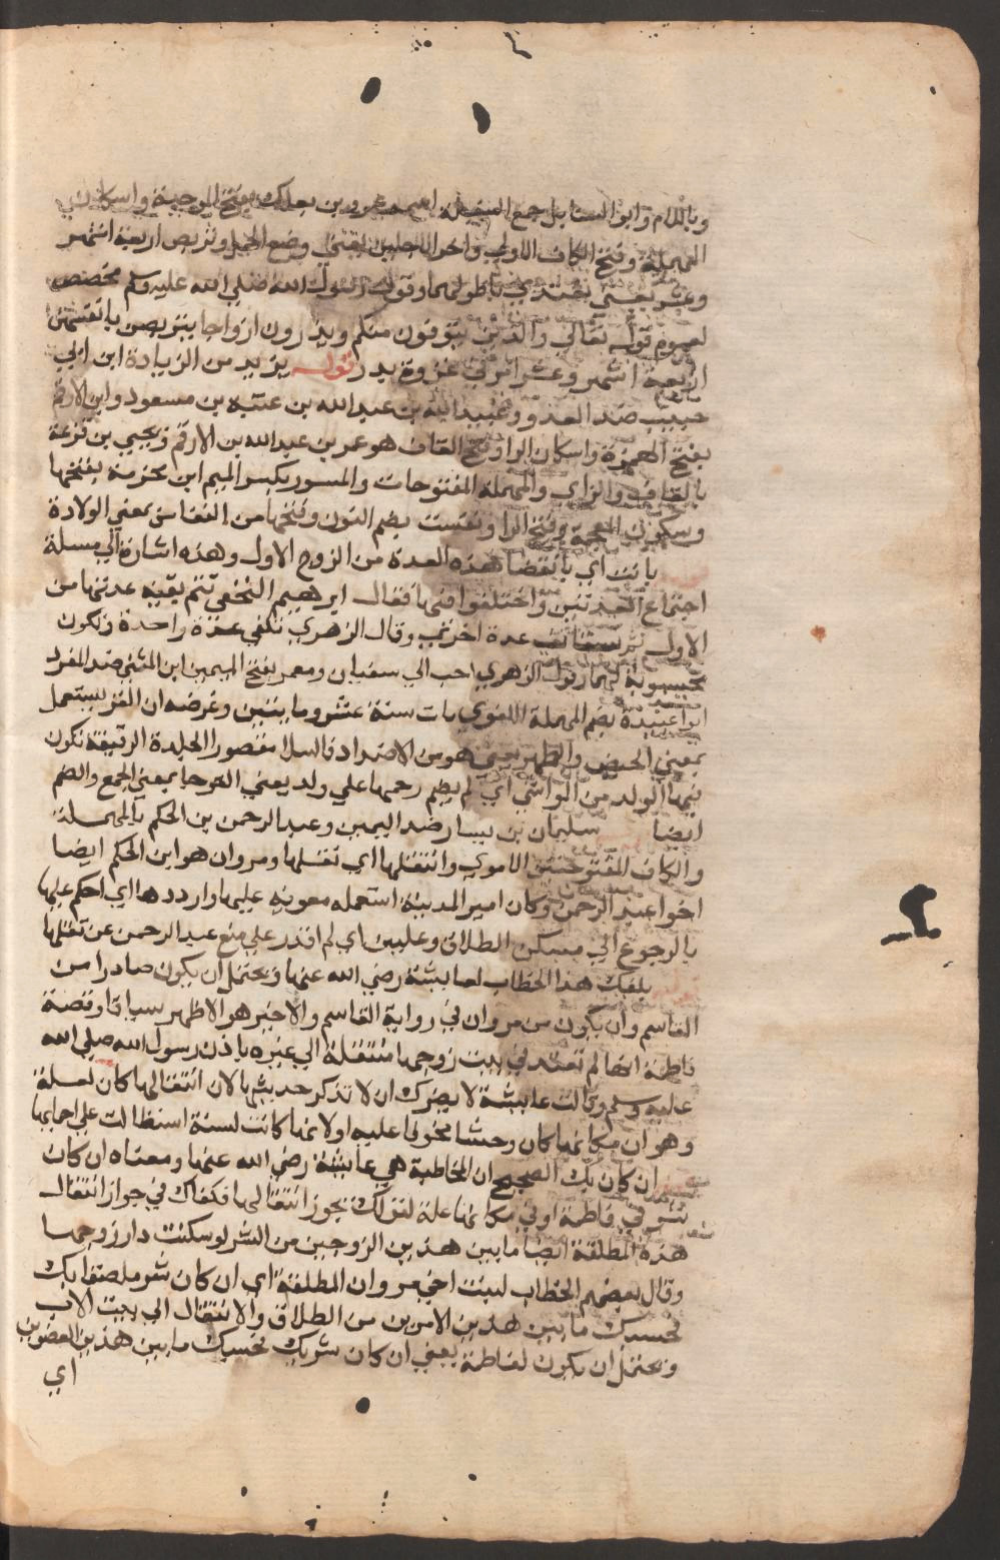 وباللام وابوالسنابل جمع السنبلة اسمه عمرو بن بعكك بفتح الموحدة واسكان
المهملة وفتح الكاف الاولي واخر الاجلين يعني وضع الحمل وتربص اربعة اشهر
وعشر يعني يعتدي باطولهما وقول رسول الله صلي الله عليه وسلم مخصص
لعموم قوله تعالي والذين يتوفون منكم ويذرون ازواجا يتربصن بانفسهن
اربعة اشهر وعشرا نزلت في غزوة بدر قوله يزيد من الزيادة ابن ابي
حبيب ضد العدو وعبيدالله بن عبدالله بن عتبه بن مسعود وابن الارقم
بفتح الهمزة واسكان الراو فتح القاف هو عمر بن عبدالله بن الارقم ويحيي بن قزعة
بالقاف والزاي والمهملة المفتوحات والمسور بكسر الميم ابن مخرمة بفتحها
وسكون المعجمة وفتح الرا ونفست بضم النون وفتحها من النفاس بمعني الولادة
بانت اي بانقضا هذه العدة من الزوج الاول وهذه اشارة الي مسلة
اجتماع العدتين واختلفوا فيها فقال ابرهيم النخعي تتم بقية عدتها من
الاول ثم تستانف عدة اخري وقال الزهري تكفي عدة واحدة وتكون
محسوبة لهما وقول الزهري احب الي سفيان ومعمر بفتح الميمين ابن المثني ضد المفرد
ابو عبيدة بضم المهملة اللغوي مات سنة عشر وماينين وغرضه ان القرء يستعمل
بمعني الحيض والطهر يعني هو من الاضداد والسلا مقصورا الجلدة الرقيقة تكون
فيها الولد من المواشي اي لم يضم رحمها علي ولد يعني القرء جا بمعني الجمع والضم
ايضا سليمان بن يسار ضد اليمين وعبد الرحمن بن الحكم بالمهملة
والكاف المفتوحتين الاموي وانتقلها اي نقلها ومروان هو ابن الحكم ايضا
اخوا عبد الرحمن وكان امير المدينة استعمله معوية عليها وارددها اي احكم عليها
بالرجوع الي مسكن الطلاق وغلبني اي لم اقدر علي منع عبد الرحمن عن نقلها
بلغك هذا الخطاب لعايشة رضي الله عنها ويحتمل ان يكون صادرا من
القاسم وان يكون من مروان في رواية القاسم والاخير هو الاظهر سياقا وقصة
فاطمة انها لم تعتد في بيت زوجها منتقلة الي غيره باذن رسول الله صلي الله
عليه وسلم وقالت عايشة لا يضرك ان لا تذكر حديثها لان انتقالها كان لعلة
وهو ان مكانها كان وحشا مخوفا عليه او لانها كانت لسنة استطالت علي احمايها
ان كان بك الصحيح ان المخاطبة هي عايشة رضي الله عنها ومعناه ان كان
شر في فاطمة او في مكانها علة لقولك نجوز انتقالها فكفاك في جواز انتقال
هذه المطلقة ايضا ما بين هذين الزوجين من الشر لو سكنت دار زوجها
وقال بعضهم الخطاب لبنت اخي مروان المطلقة اي ان كان شر ملصقا بك
فحسبك ما بين هذين الامرين من الطلاق والانتقال الي بيت الاب
ويحتمل ان يكون لفاطمة يعني ان كان شر بك فحسبك ما بين هذين
اي